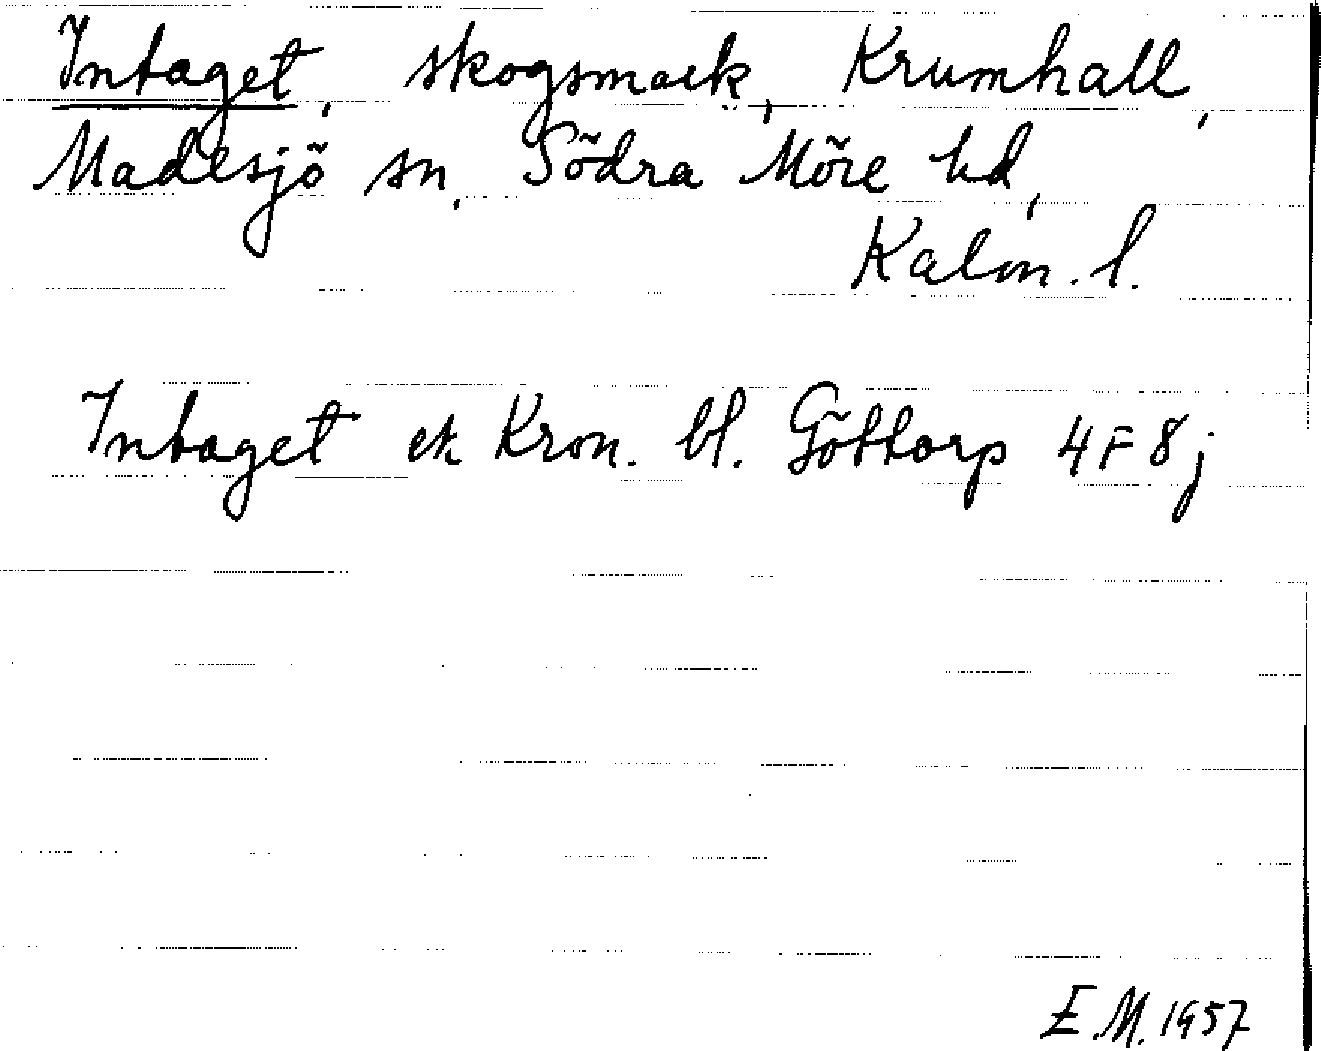 Intaget, skogsmark, Krumhall,
Madesjö sn, Södra Möre hd,
Kalm. l.
Intaget ek Kron. bl. Göttorp 4F8j
E.M. 1957